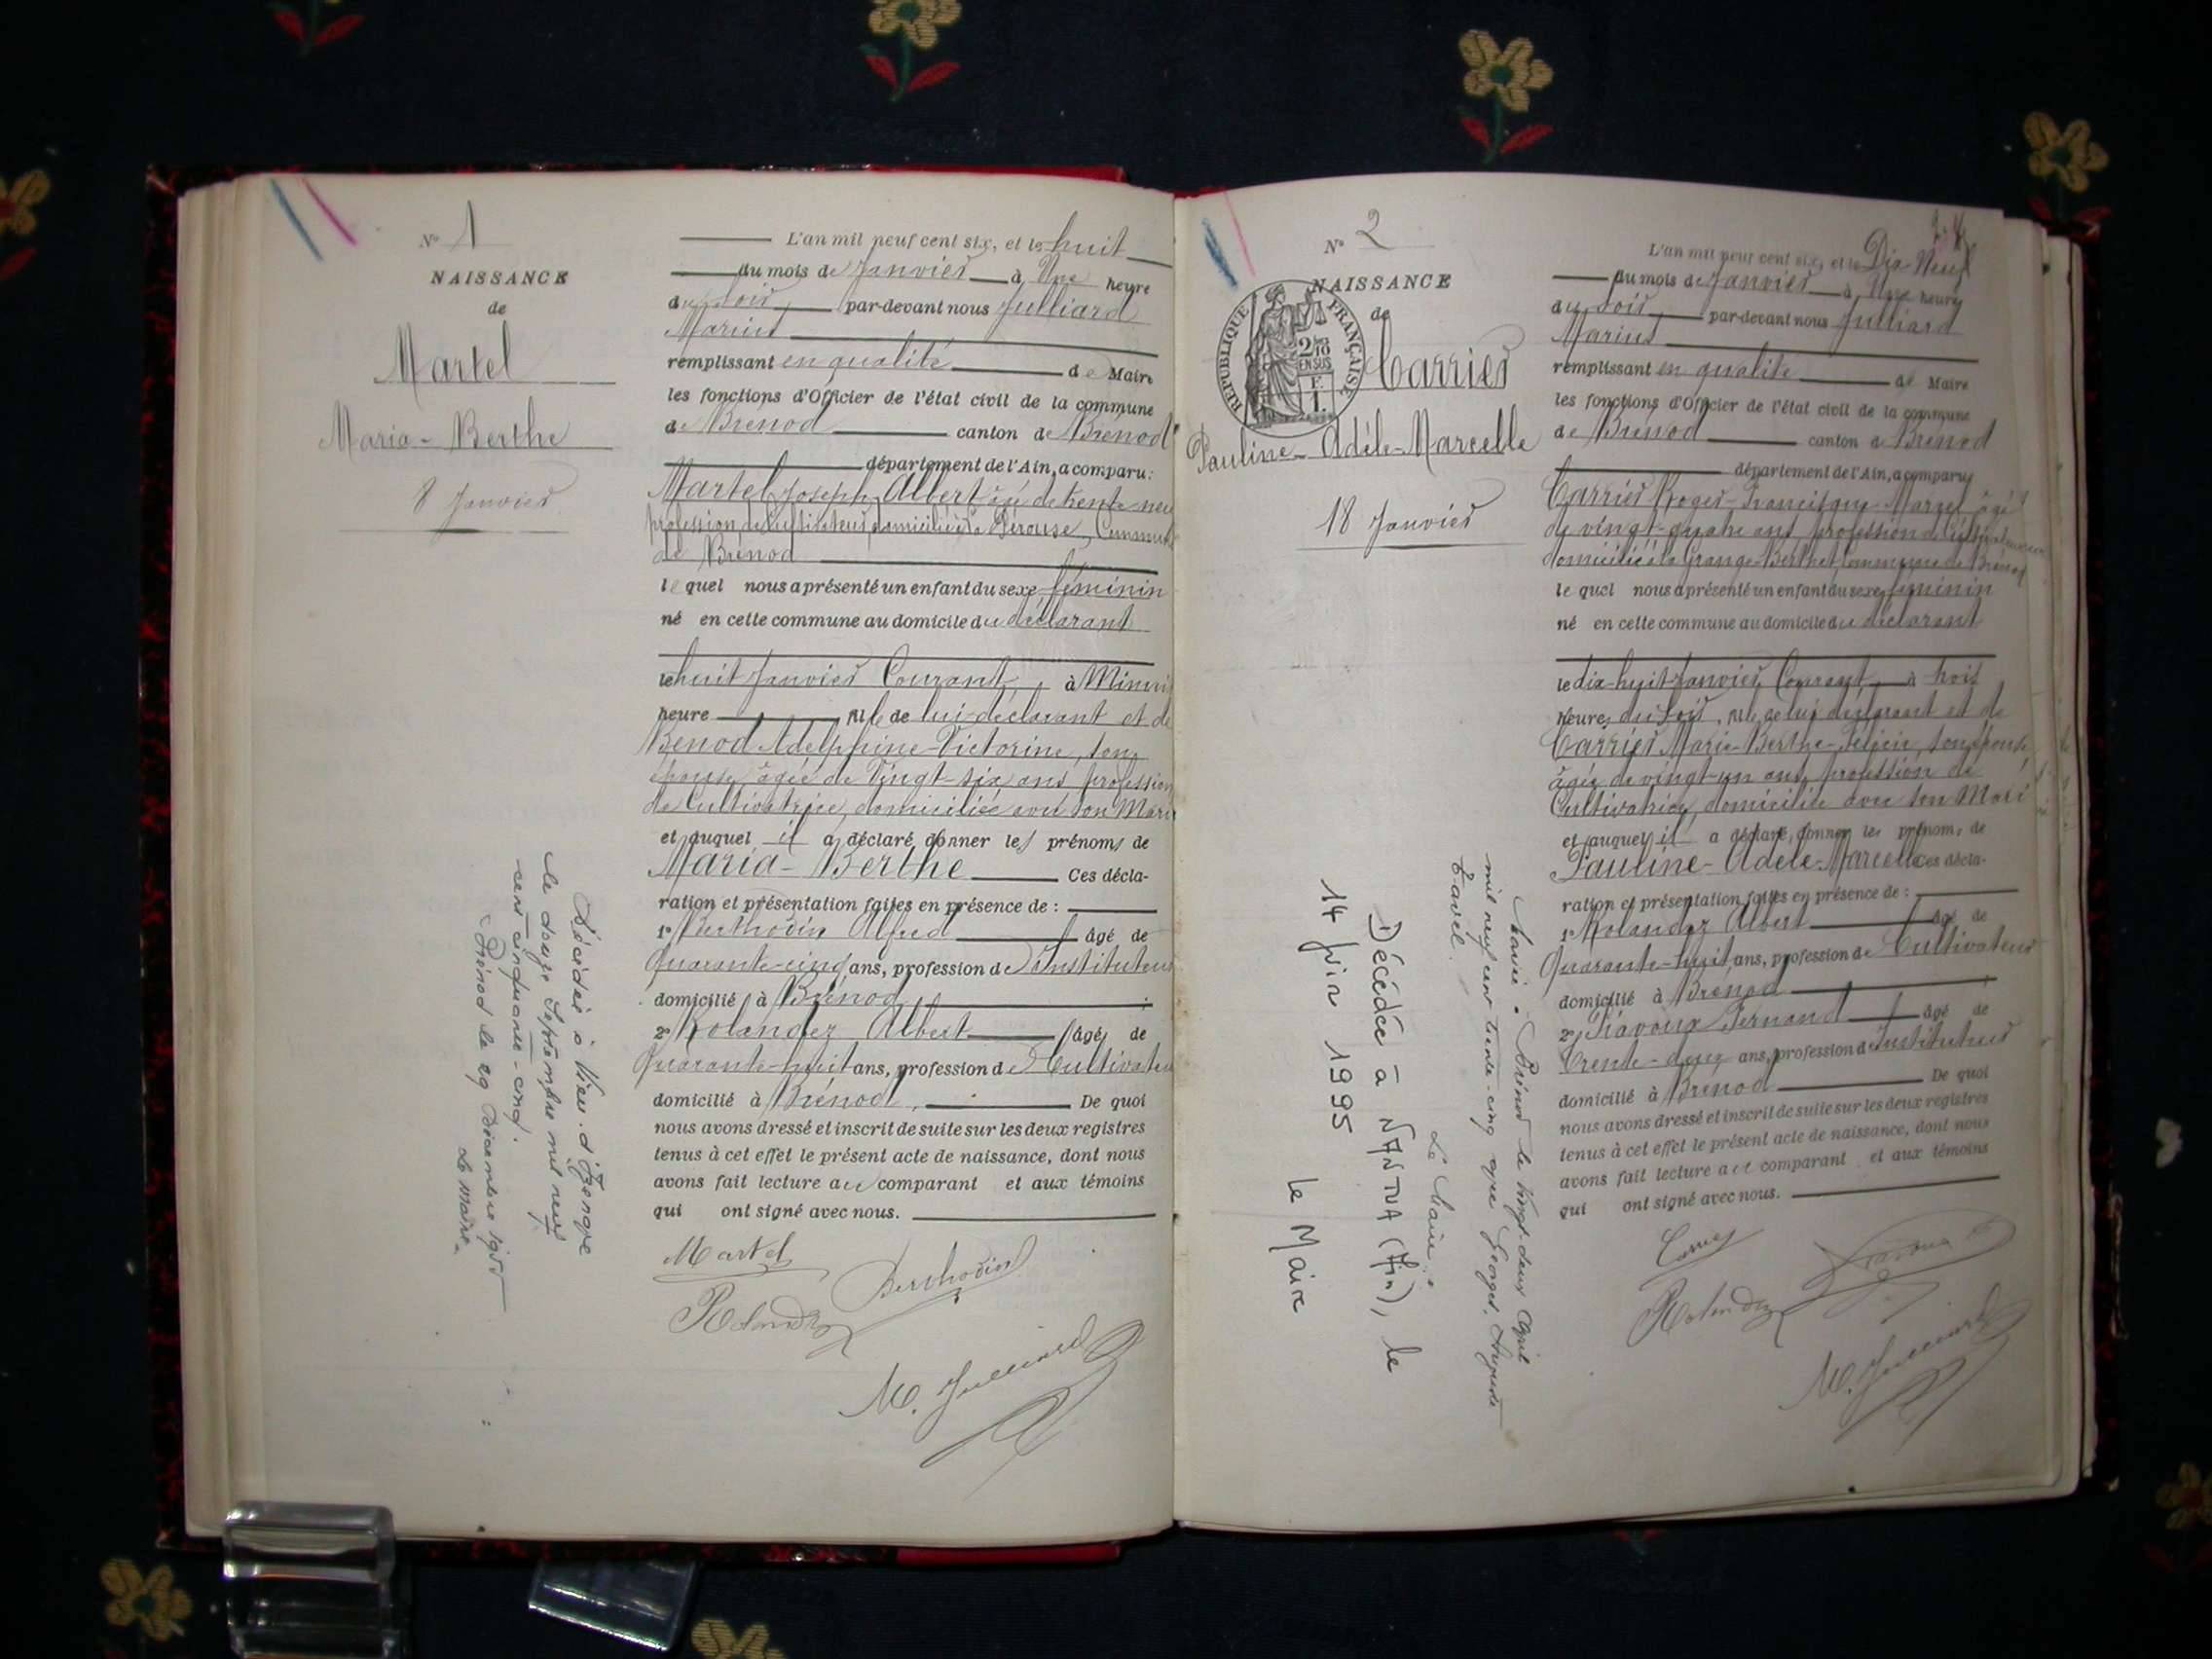 N° 1
NAISSANCE
de
Martel
Maria-Berthe
8 Janvier
Décédée à Vieu-d'Izenave
le douze Septembre mil neuf
cent cinquante-cinq.
Brénod le 29 Décembre 1955
Le Maire
L'an mil neuf cent six, et le huit
du mois de Janvier à Une heure
du soir par-devant nous Julliard
Marius
remplissant en qualité de Maire
les fonctions d'Officier de l'état civil de la commune
de Brénod canton de Brénod
département de l'Ain, a comparu:
Martel Joseph Albert âgé de trente neuf
profession de Cultivateur domicilié à la Pérouse, Commune
de Brénod
le quel nous a présenté un enfant du sexe féminin
né en cette commune au domicile du déclarant
le huit Janvier Courant, à Minuit
heure fille de lui déclarant et de
Benod Adelphine-Victorine, son
épouse, âgée de Vingt-six ans profession
de Cultivatrice, domiciliée avec son Mari
et auquel il a déclaré donner les prénoms de
Maria-Berthe Ces décla-
ration et présentation faites en présence de :
1° Berthodin Alfred âgé de
Quarante-cinq ans, profession de Instituteur
domicilié à Brénod ;
2° Rolandez Albert âgé de
Quarante-huit ans, profession de Cultivateur
domicilié à Brénod, De quoi
nous avons dressé et inscrit de suite sur les deux registres
tenus à cet effet le présent acte de naissance, dont nous
avons fait lecture au comparant et aux témoins
qui ont signé avec nous.
Martel
Berthodin
Rolandez
M. Julliard
N° 2
NAISSANCE
de
RÉPUBLIQUE FRANÇAISE
2/10
EN SUS
F.
1.
Carrier
Pauline-Adèle-Marcelle
18 Janvier
Mariée à Brénod le vingt-deux Avril
mil neuf cent trente-cinq avec Georges, Auguste
Tavel.
Le Maire
Décédée à NANTUA (Ain), le
14 juin 1995
le Maire
L'an mil neuf cent six, et le Dix-Neuf
du mois de Janvier à Une heure
du soir par-devant nous Julliard
Marius
remplissant en qualité de Maire
les fonctions d'Officier de l'état civil de la commune
de Brénod canton de Brénod
département de l'Ain, a comparu
Carrier Roger-Francisque-Marcel âgé
de vingt-quatre ans, profession de Cultivateur
domicilié à la Grange-Berthet, commune de Brénod
le quel nous a présenté un enfant du sexe féminin
né en cette commune au domicile du déclarant
le dix-huit Janvier Courant, à trois
heures du soir, fille de lui déclarant et de
Carrier Marie-Berthe-Félicie, son épouse,
âgée de vingt-un ans, profession de
Cultivatrice, domiciliée avec son Mari
et auquel il a déclaré donner les prénoms de
Pauline-Adèle-Marcelle Ces décla-
ration et présentation faites en présence de :
1° Rolandez Albert âgé de
Quarante-huit ans, profession de Cultivateur
domicilié à Brénod ;
2° Fernand âgé de
Trente-deux ans, profession d'Instituteur
domicilié à Brénod De quoi
nous avons dressé et inscrit de suite sur les deux registres
tenus à cet effet le présent acte de naissance, dont nous
avons fait lecture au comparant et aux témoins
qui ont signé avec nous.
Carrier
Rolandez
M. Julliard